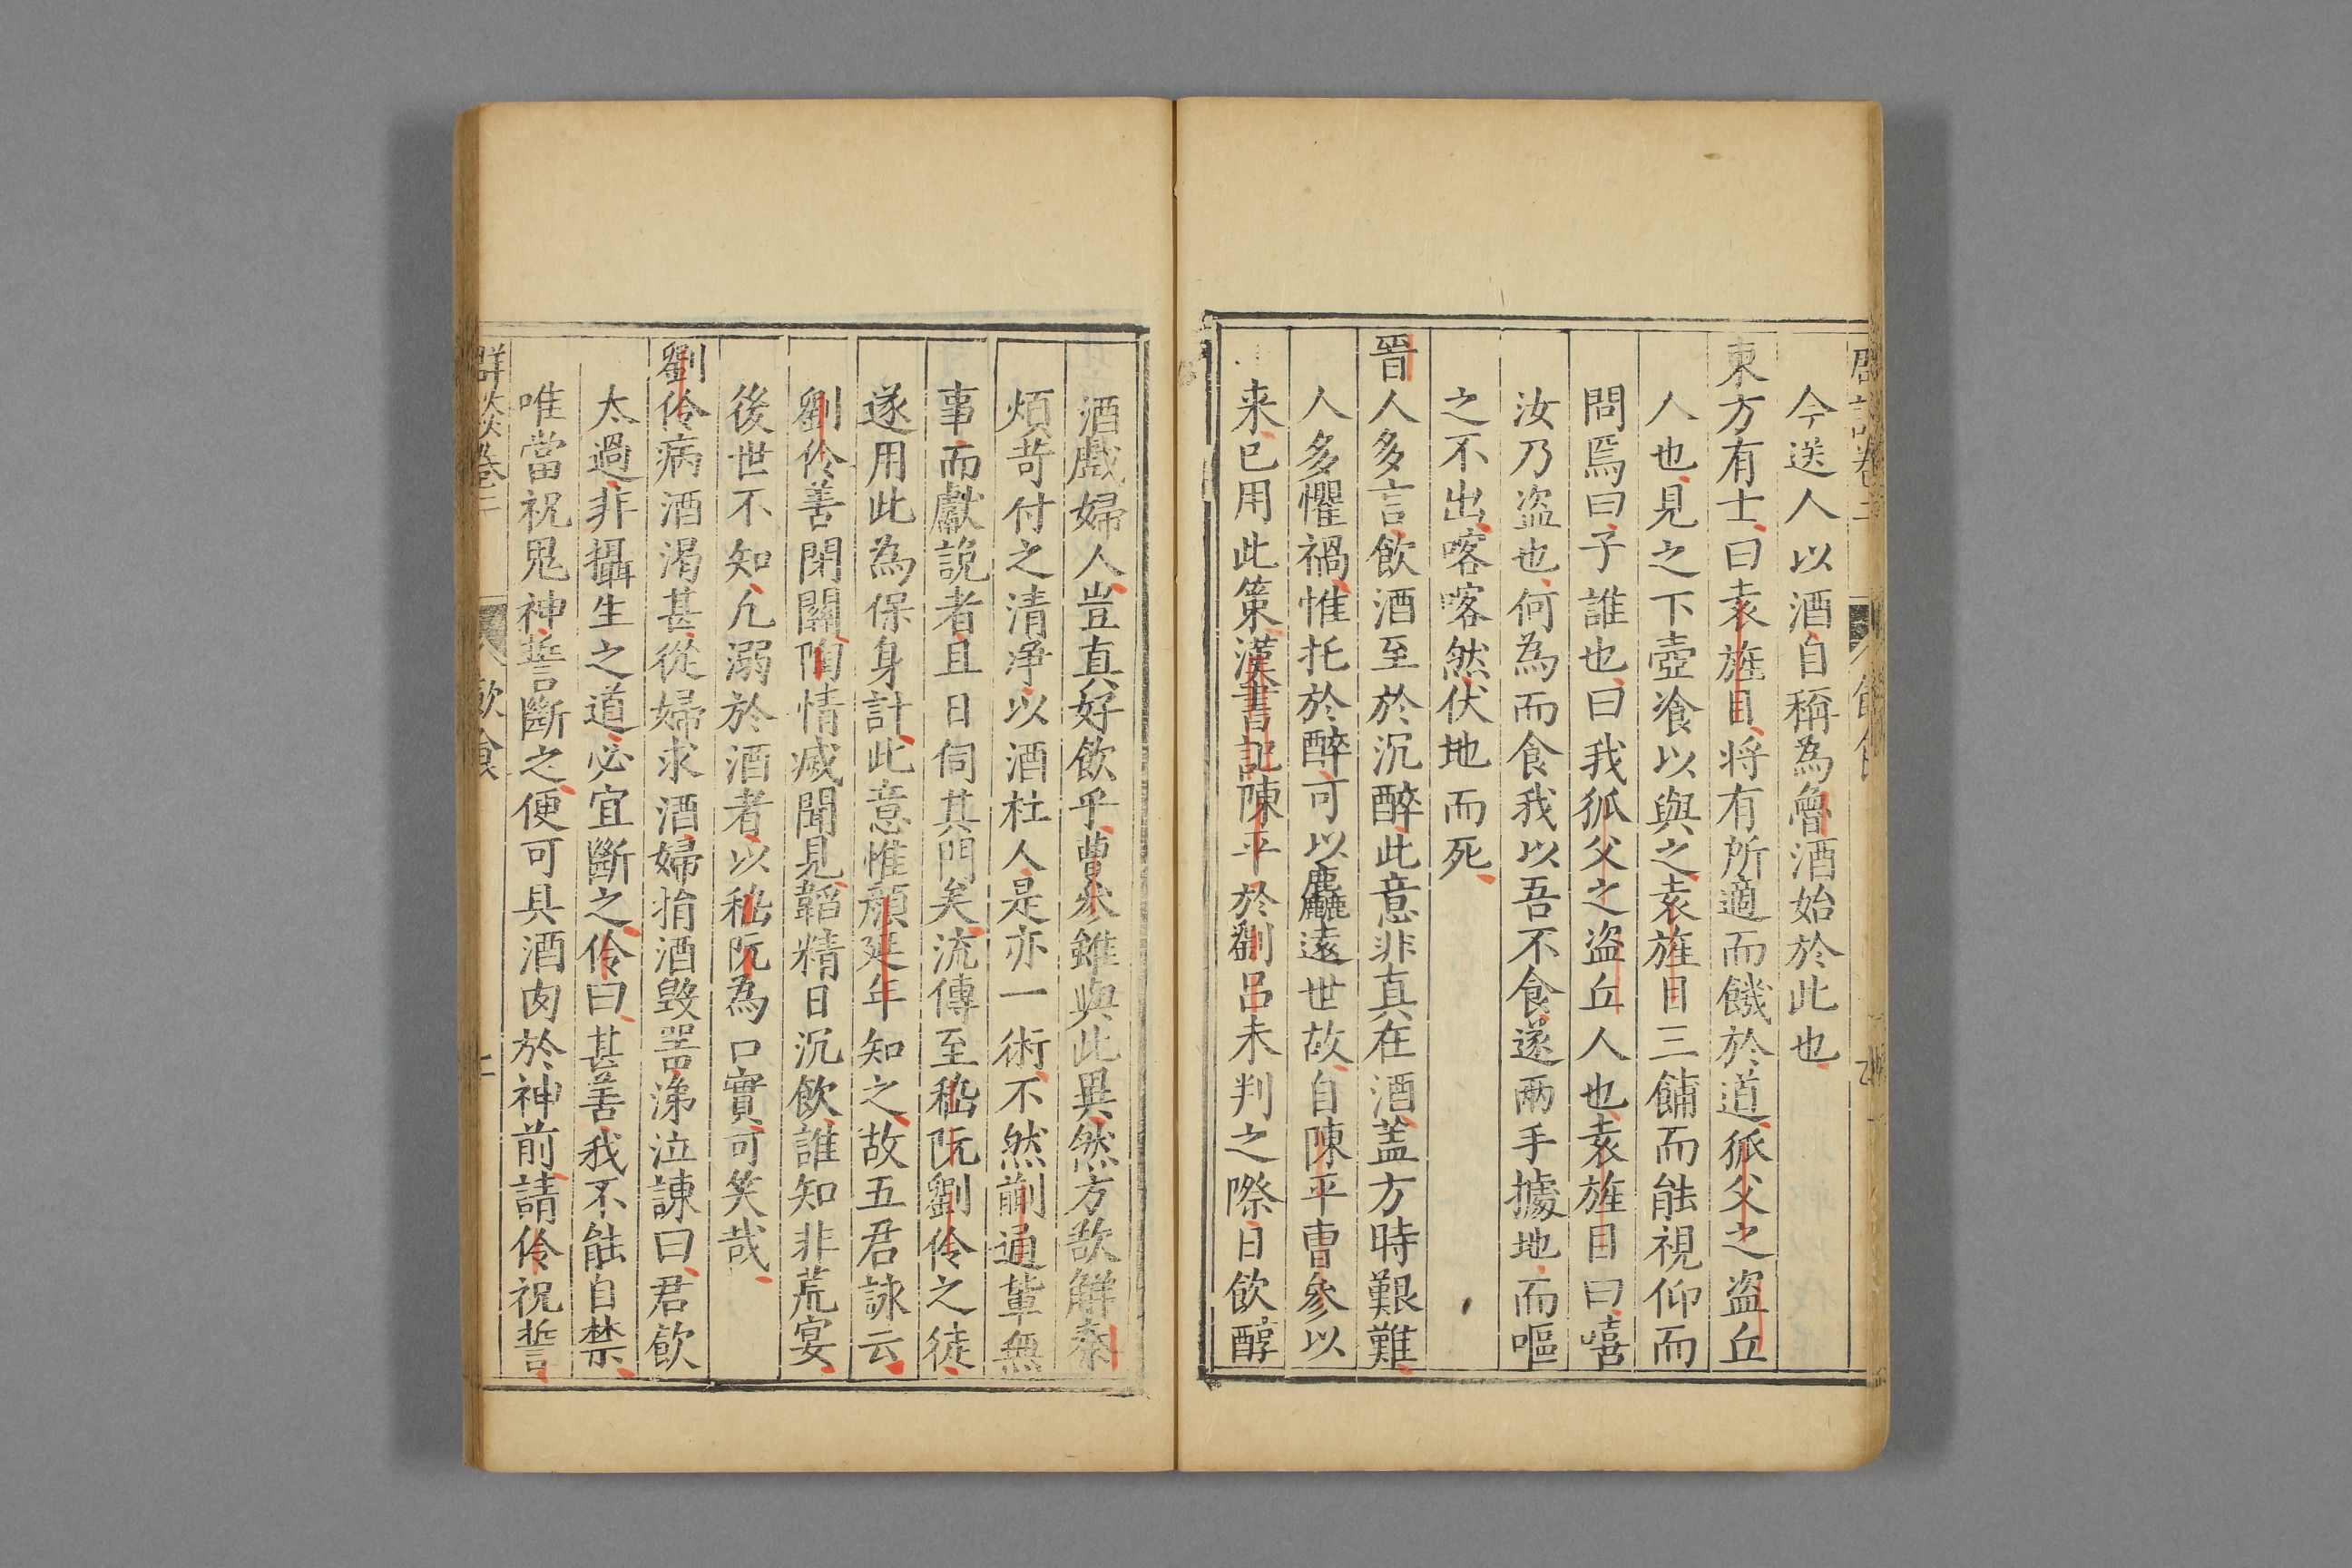 今送人以酒自稱為魯酒始於此也
東方有士曰袁旌目将有所適而饑於道狐父之盗丘
人也見之下壺飡以與之袁旌目三餔而能視仰而
問焉曰子誰也曰我狐父之盗丘人也袁旌目曰嘻
汝乃盗也何為而食我以吾不食遂兩手據地而嘔
之不出喀喀然伏地而死
晉人多言飲酒至於沉醉此意非真在酒盖方時艱難
人多懼禍惟托於醉可以麤遠世故自陳平曹參以
来已用此策漢書記陳平於劉吕未判之際日飲醇
酒戲婦人豈真好飲乎曹參雖與此異然方欲觧秦
煩苛付之清净以酒杜人是亦一術不然蒯通軰無
事而獻說者且日伺其門矣流傳至嵇阮劉伶之徒
遂用此為保身計此意惟顔延年知之故五君詠云
劉伶善閉關陶情滅聞見韜精日沉飲誰知非荒宴
後世不知凢溺於酒者以嵇阮為口實可笑哉
劉伶病酒渴甚從婦求酒婦捐酒毁噐涕泣諌曰君飲
太過非攝生之道必宜斷之伶曰甚善我不能自禁
唯當祝鬼神誓斷之便可具酒肉於神前請伶祝誓
群談卷二 飲食